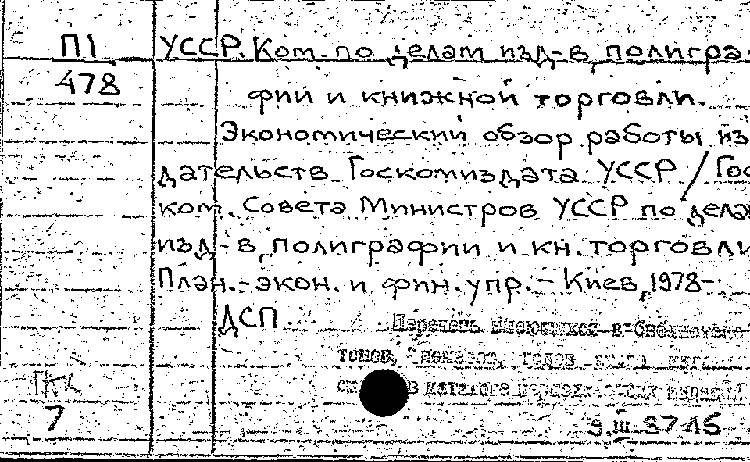 П1 УССР. Ком. по делам изд-в, полигра-
478 фии и книжной торговли.
Экономический обзор работы из
дательств Госкомиздата УССР / Гос
ком. Совета Министров УССР по делам
изд-в, полиграфии и кн. торговли
План.-экон. и фин. упр. - Киев, 1978-
ДСП
Перечень в библиотеке
томов, номеров, годов
в каталоге
7